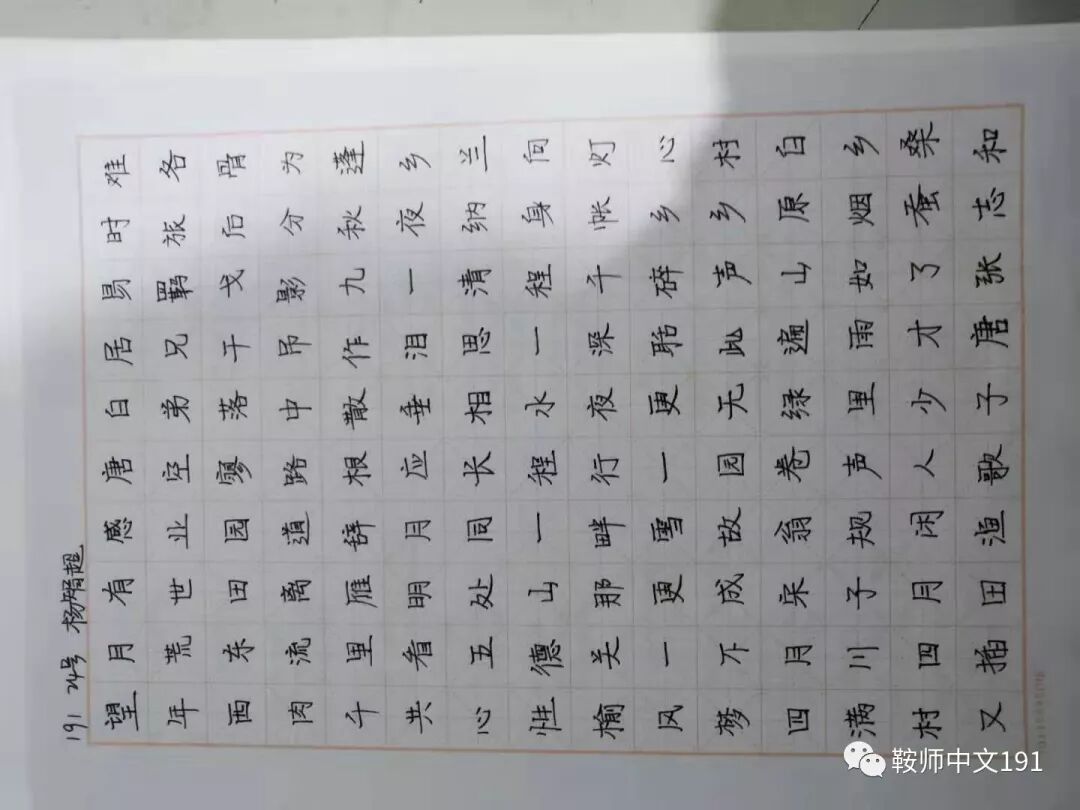 191 24号
望月有感唐白居易时难
年荒世业空弟兄羁旅各
西东田园寥落干戈后骨
肉流离道路中吊影分为
千里雁辞根散作九秋蓬
共看明月应垂泪一夜乡
心五处同长相思清纳兰
性德山一程水一程身向
榆关那畔行夜深千帐灯
风一更雪一更聒碎乡心
梦不成故园无此声乡村
四月宋翁卷绿遍山原白
满川子规声里雨如烟乡
村四月闲人少才了蚕桑
又插田渔歌子唐张志和
鞍师中文191